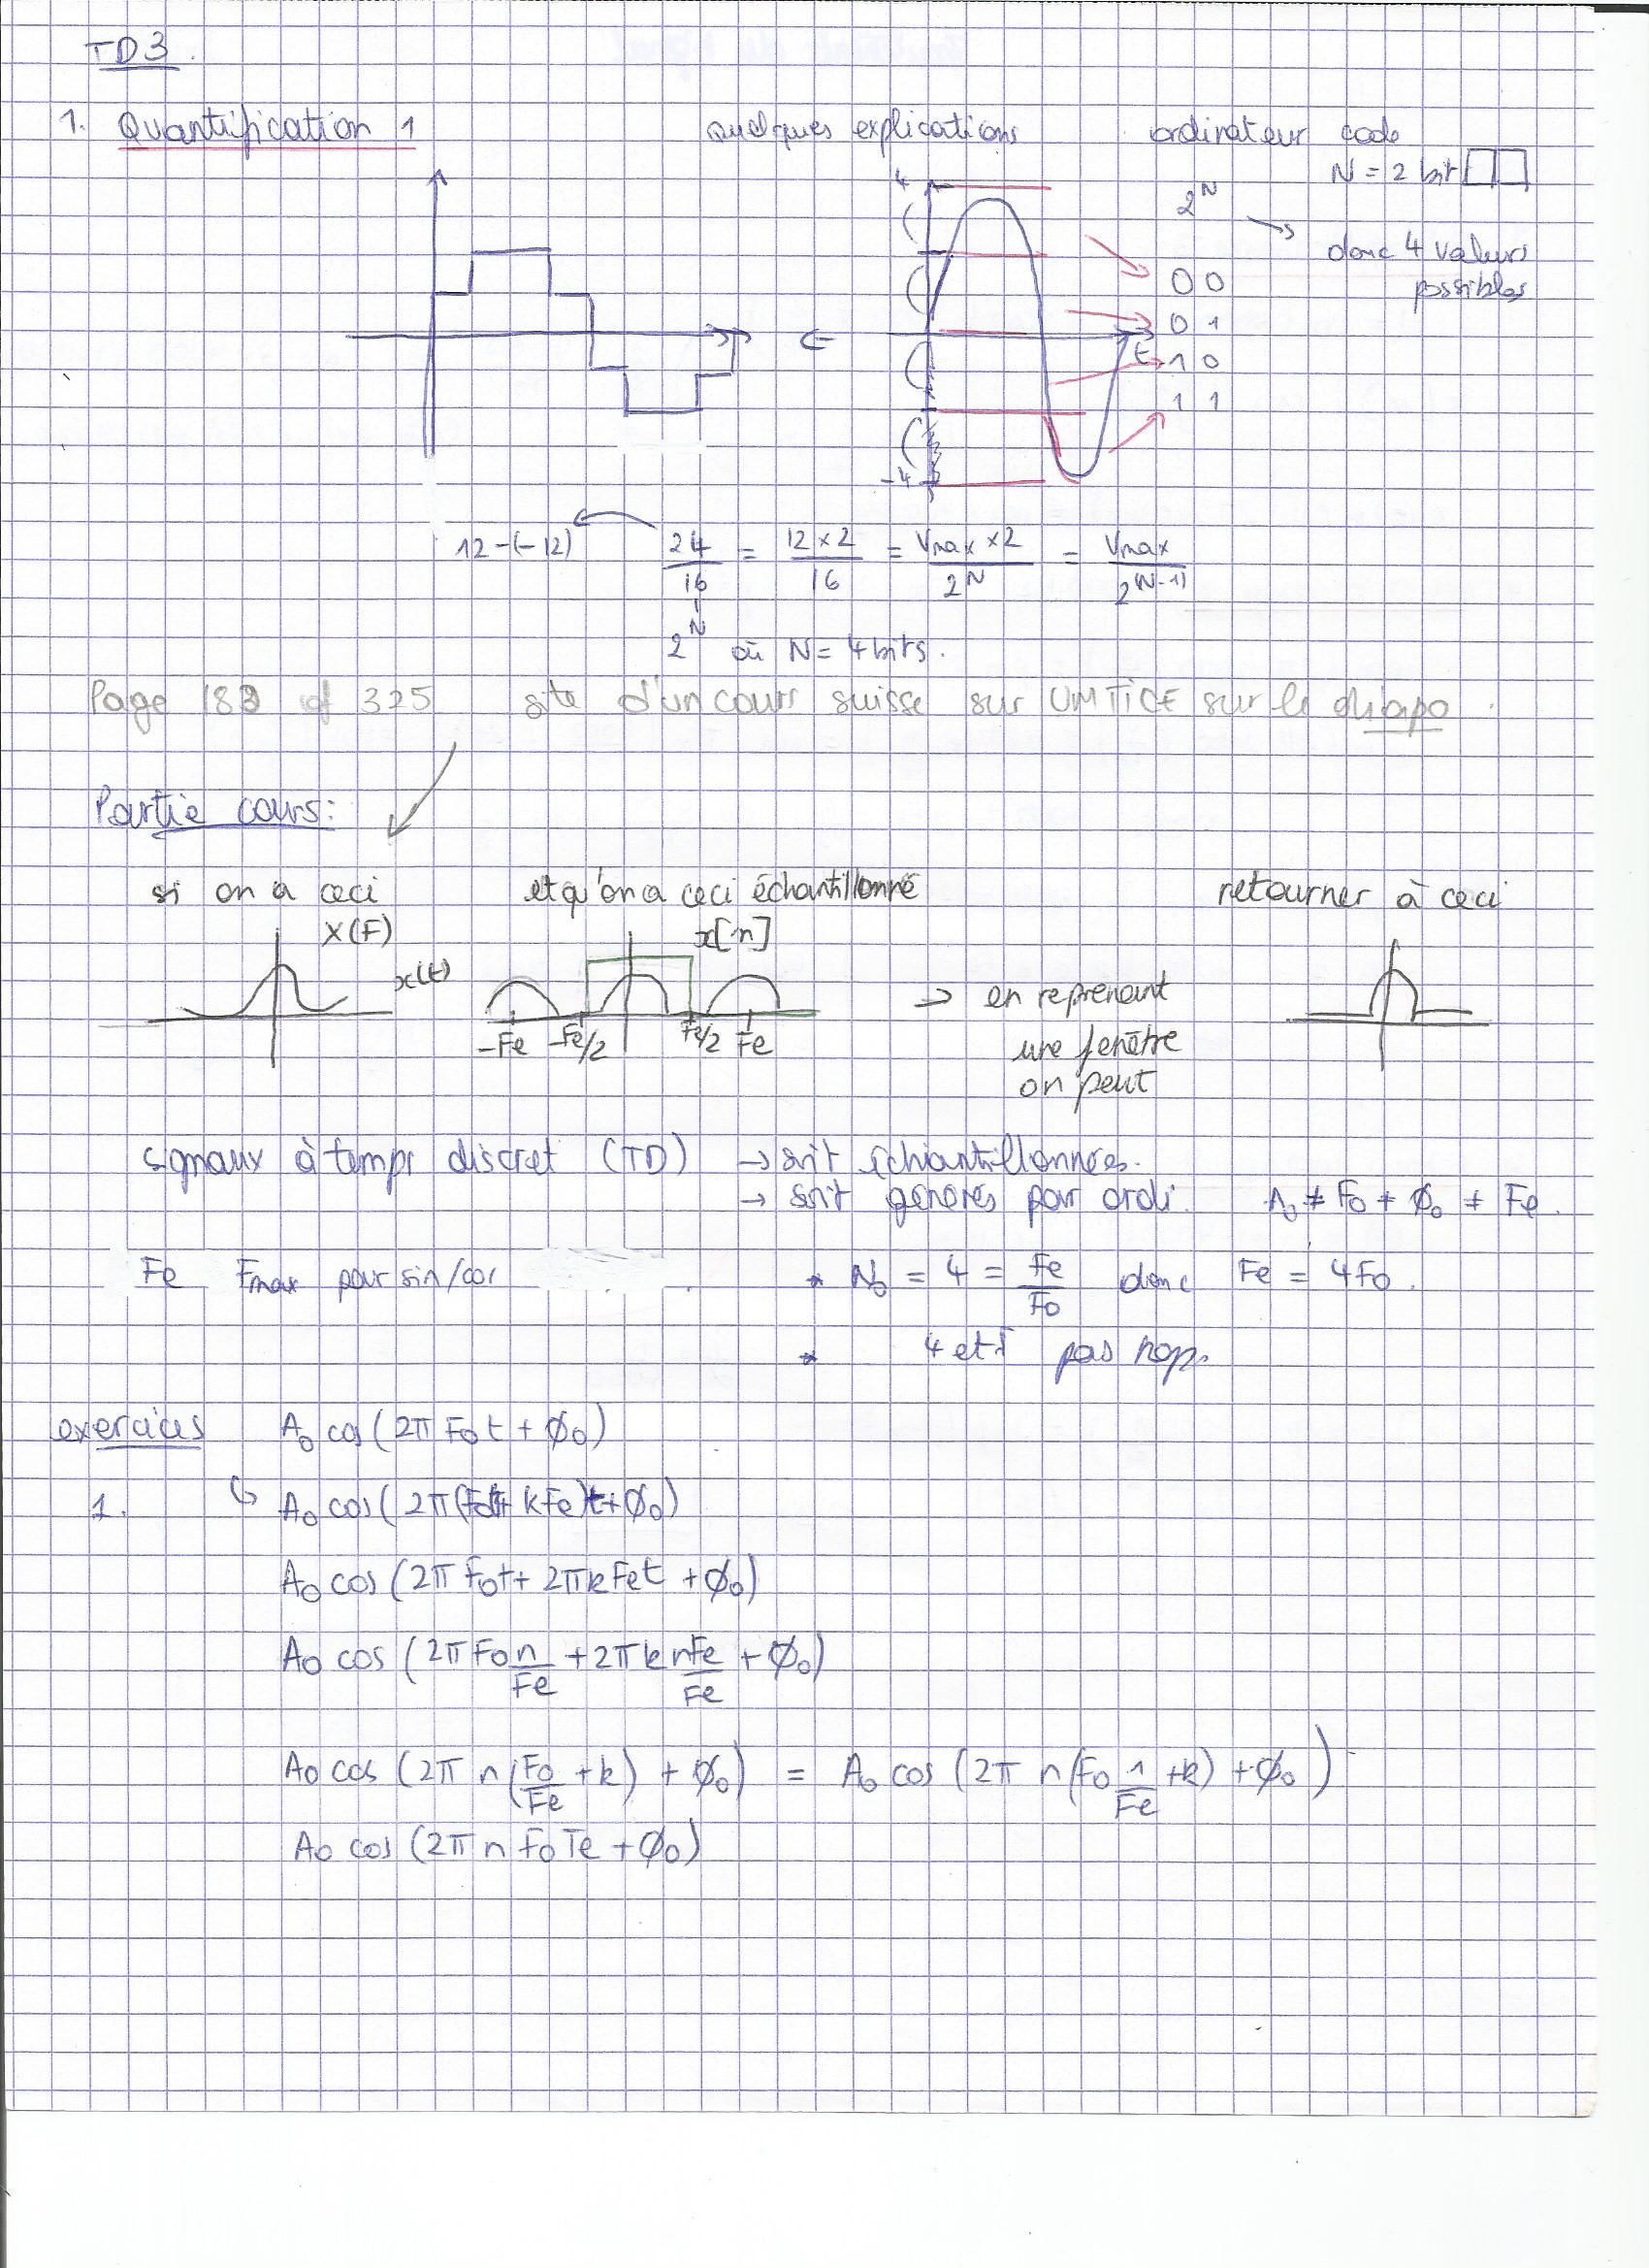 TD3.
1. Quantification 1
quelques explications
ordinateur code
N = 2 bit
2^N
→ donc 4 valeurs possibles
4
0 0
0 1
t
1 0
1 1
-4
12-(-12) 24/16 = 12×2/16 = Vmax×2/2^N = Vmax/2^(N-1)
2^N où N = 4 bits.
Page 183 of 325 site d'un cours suisse sur UMTICE sur le diapo.
Partie cours:
si on a ceci
X(F)
x(t)
et qu'on a ceci échantillonné
x[n]
-Fe -Fe/2 Fe/2 Fe
→ en reprenant
une fenêtre
on peut
retourner à ceci
signaux à temps discret (TD) → soit échantillonnés.
→ soit générés par ordi. A0 ≠ F0 ≠ ø0 ≠ Fe.
Fe Fmax pour sin/cos
* N0 = 4 = Fe/F0 donc Fe = 4F0.
* 4 et pas
exercices A0 cos(2π F0 t + ø0)
1. ↳ A0 cos(2π(F0 + kFe)t + ø0)
A0 cos(2π F0t + 2πkFet + ø0)
A0 cos(2π F0 n/Fe + 2π k nFe/Fe + ø0)
A0 cos(2π n(F0/Fe + k) + ø0) = A0 cos(2π n(F0 1/Fe + k) + ø0)
A0 cos(2π n F0 Te + ø0)